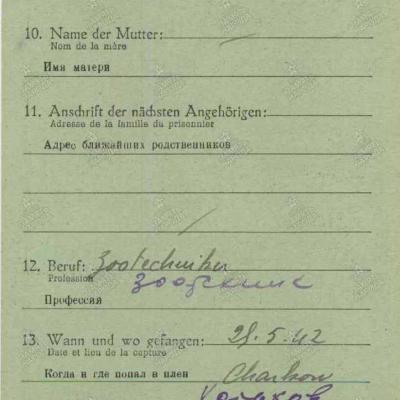 10. Name der Mutter: —
Nom de la mère
Имя матери
11. Anschrift der nächsten Angehörigen:
Adresse de la famille du prisonnier
Адрес ближайших родственников
12. Beruf: Zootechniker
Profession зоотехник
Профессия
13. Wann und wo gefangen: 28.5.42
Date et lieu de la capture
Когда и где попал в плен Charkow
Харьков